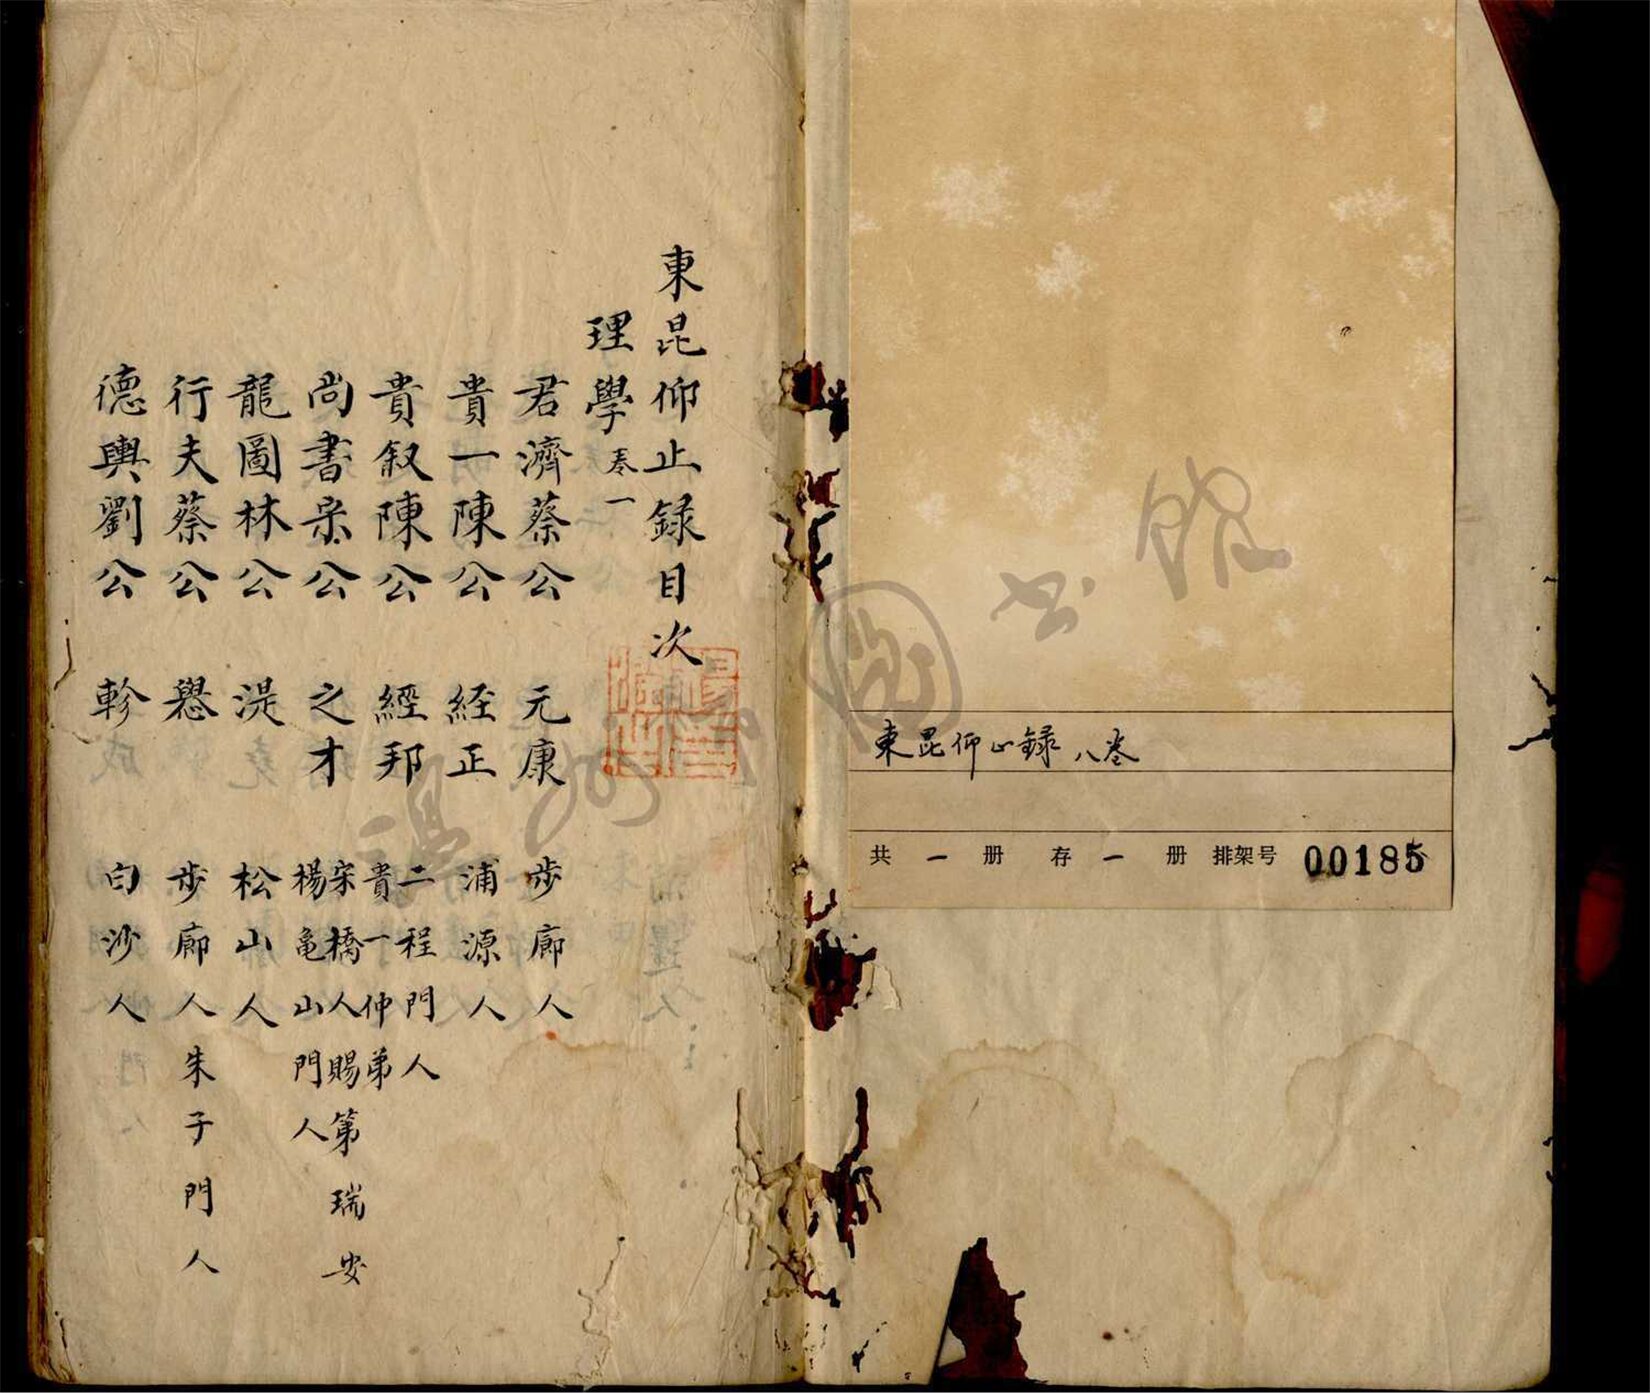 東昆仰止録目次
理學 卷一
君濟蔡公 元康 步廊人
貴一陳公 経正 浦源人
貴叙陳公 經邦 二程門人
貴一仲弟
尚書宋公 之才 宋橋人賜第瑞安
楊亀山門人
龍圖林公 湜 松山人
行夫蔡公 㒜 步廊人朱子門人
德輿劉公 軫 白沙人
東昆仰止録 八卷
共一册 存一册 排架号 00185
温州圖书馆